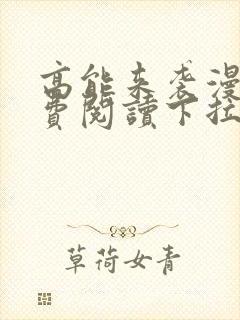 高能来袭漫
费阅读下拉
草荷女青